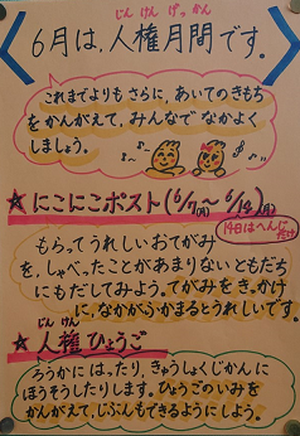 じんけんげっかん
6月は、人権月間です。
これまでよりもさらに、あいてのきもち
をかんがえて、みんなでなかよく
しましょう。
★にこにこポスト(6/7(月)～6/14(月))
14日はへんじだけ
もらってうれしいおてがみ
を、しゃべったことがあまりないともだち
にもだしてみよう。てがみをきっかけ
に、なかがふかまるとうれしいです。
じんけん
★人権ひょうご
ろうかにはったり、きゅうしょくじかんに
ほうそうしたりします。ひょうごのいみを
かんがえて、じぶんもできるようにしよう。